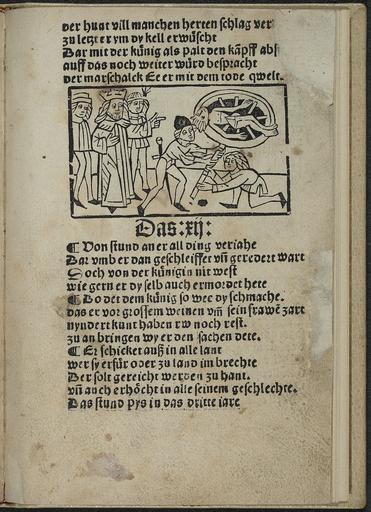 der hunt vill manchen herten schlag ver
zu letzt er ym dy kell erwüscht
Dar mit der künig als palt den käpff abs
auff das noch weiter würd bespracht
der marschalck Ee er mit dem tode qwelt.
Das:xij:
¶ Von stund an er all ding veriahe
Dar vmb er dan geschleiffet vñ geredert wart
Doch von der künigin nit west
wie gern er dy selb auch ermordet hete
¶ Do det dem künig so wee dy schmache.
das er vor grossem weinen vm̃ sein frawẽ zart
nyndert kunt haben rw noch rest.
zu an bringen wy er den sachen dete.
¶ Er schicket auß in alle lant
wer sy erfür oder zu land im brechte
Der solt gereicht werden zu hant.
vñ auch erhöcht in alle seinem geschlechte.
Das stund pys in das dritte iare